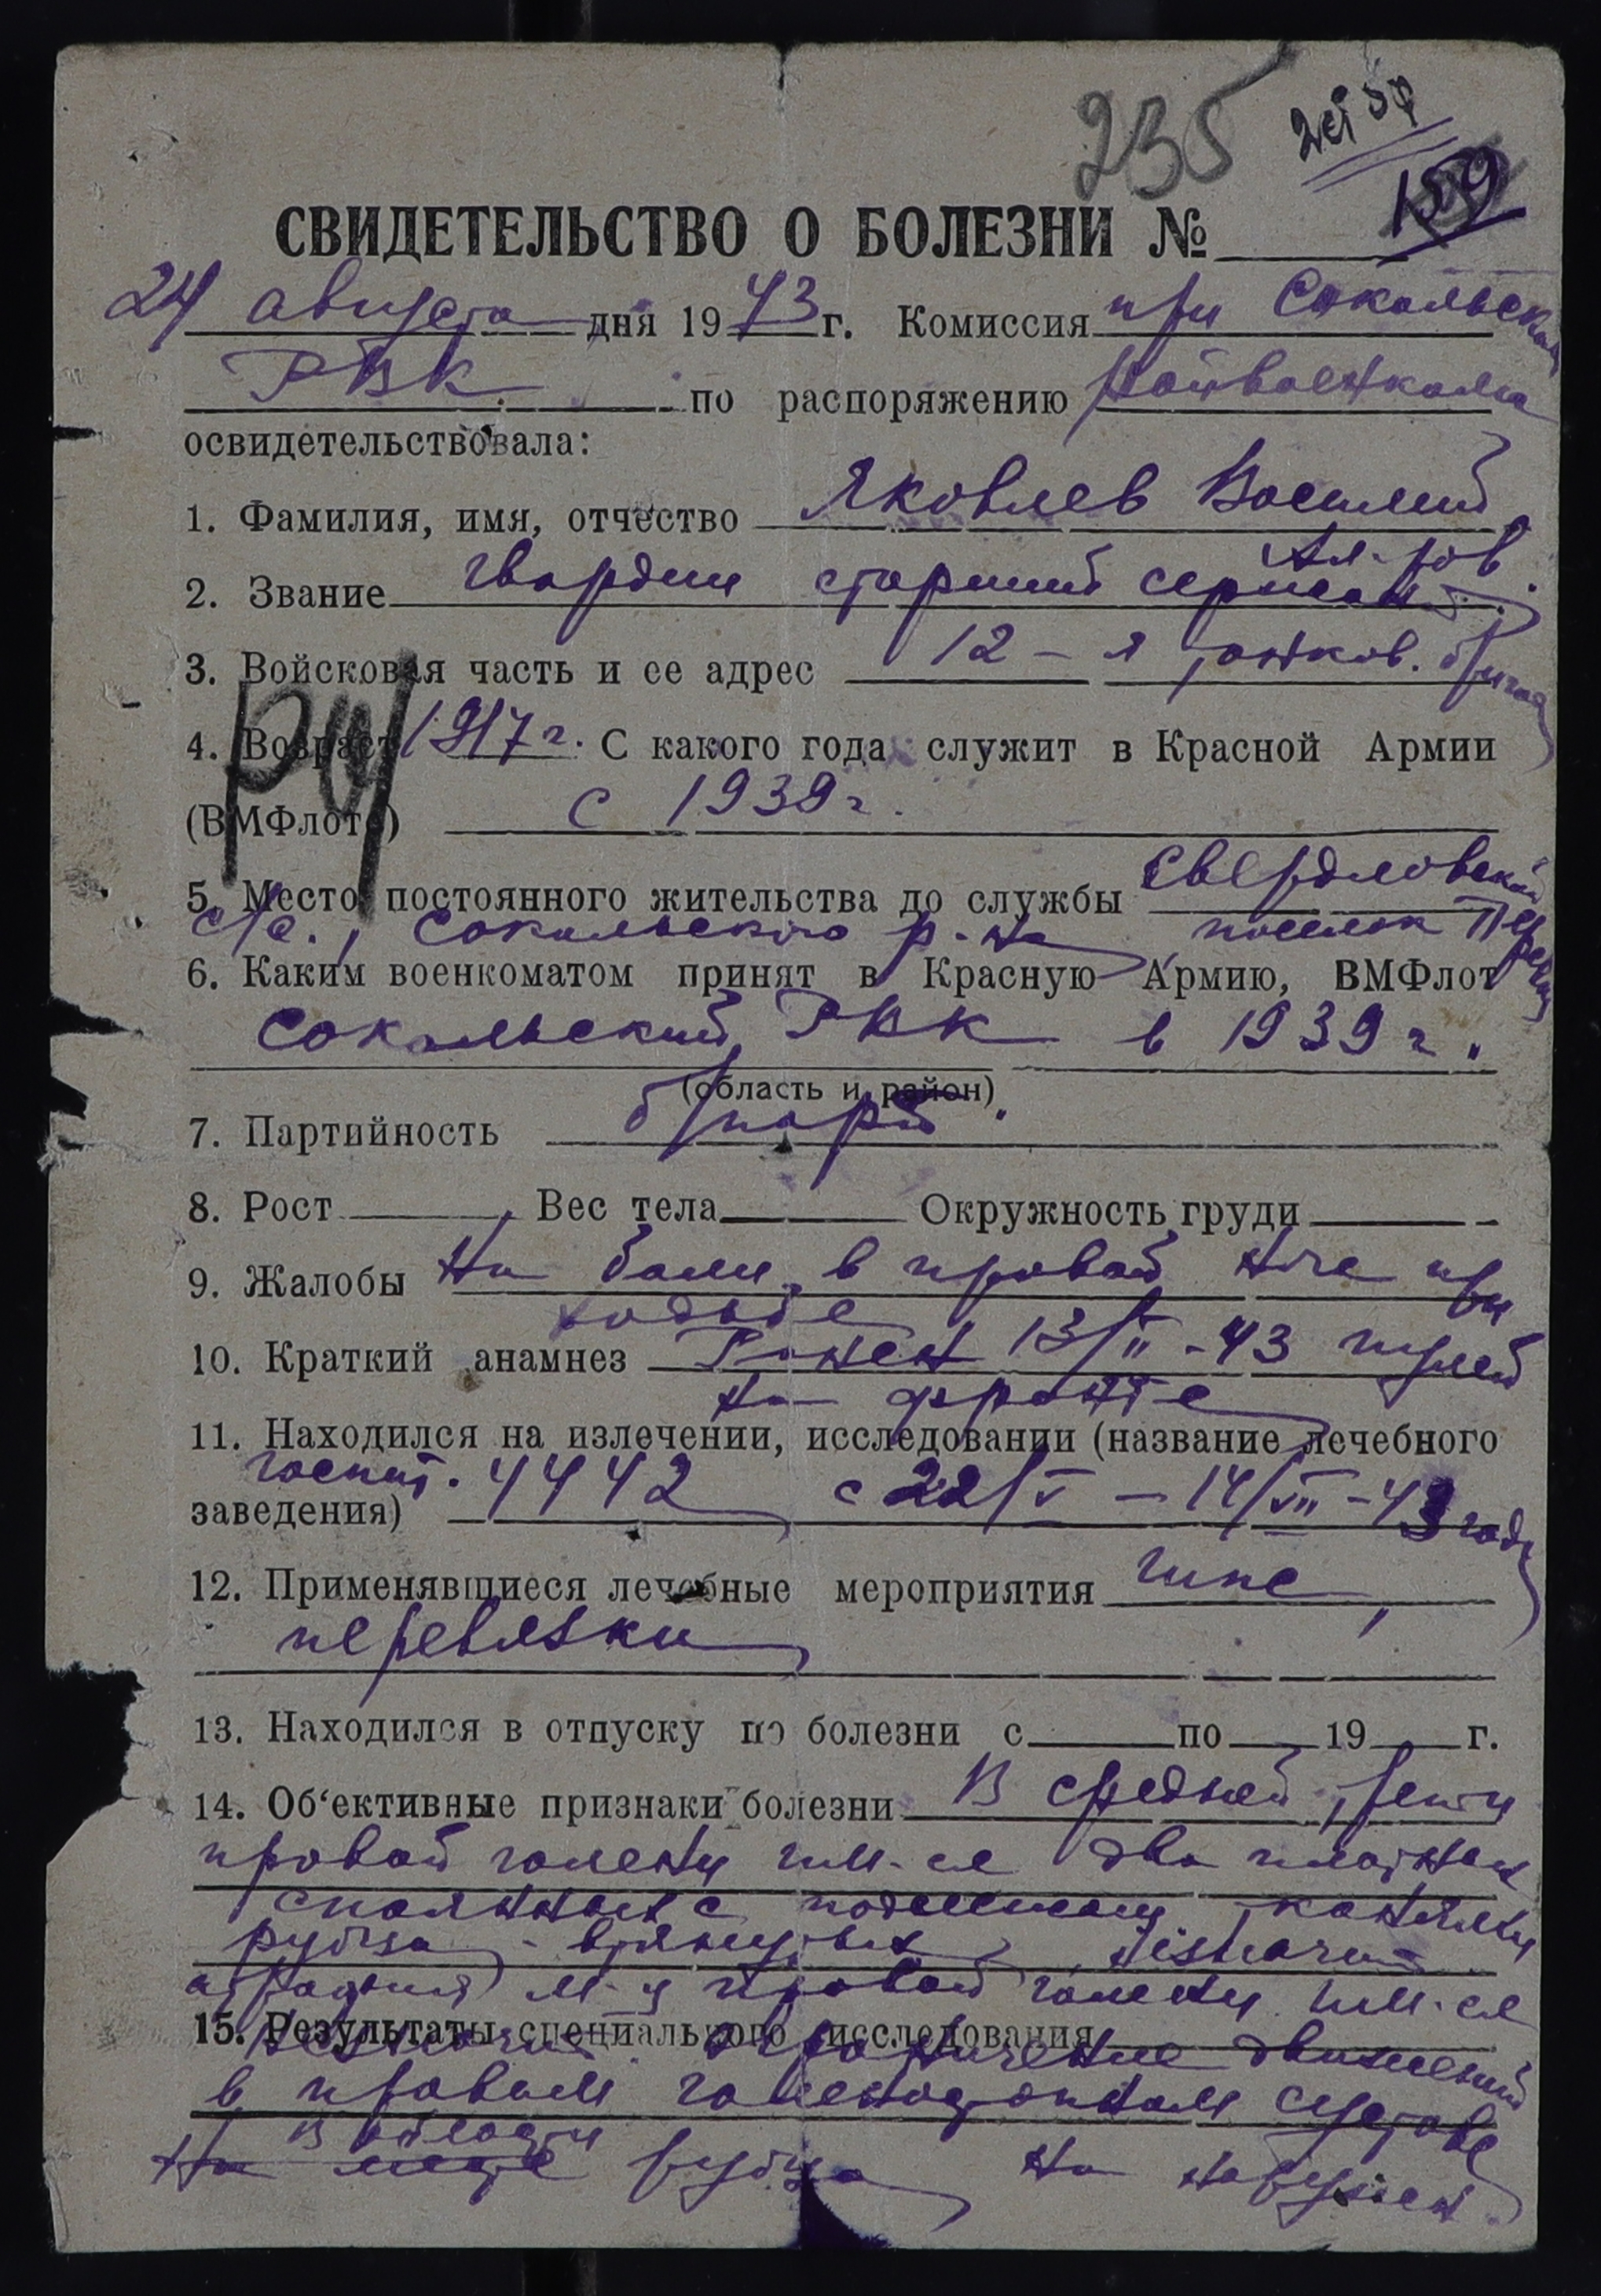 235
159
СВИДЕТЕЛЬСТВО О БОЛЕЗНИ №
24 августа дня 1943 г. Комиссия при Сокольском
РВК по распоряжению Райвоенкома
освидетельствовала:
1. Фамилия, имя, отчество Яковлев Василий
Ал-ров.
2. Звание гвардии старший сержант
3. Войсковая часть и ее адрес 12-я танков. бригада
4. Возраст 1917 г. С какого года служит в Красной Армии
(ВМФлоте) с 1939 г.
5. Место постоянного жительства до службы Свердловский
с/с., Сокольского р-на, поселок
6. Каким военкоматом принят в Красную Армию, ВМФлот
Сокольский РВК в 1939 г.
(область и район)
7. Партийность б/парт.
8. Рост Вес тела Окружность груди
9. Жалобы На боли в правой ноге при
ходьбе
10. Краткий анамнез Ранен 13/II-43 пулей
на фронте
11. Находился на излечении, исследовании (название лечебного
госпит. 4442 с 22/V — 14/VII-43 году
заведения)
12. Применявшиеся лечебные мероприятия гипс,
перевязки
13. Находился в отпуску по болезни с по 19 г.
14. Об'ективные признаки болезни В средней трети
правой голени им-ся два плотных
спаянных с подлежащ. тканями
рубца - втянутых,
атрофия м-ц правой голени. им-ся
15. Результаты специального исследования
ограничение движений
в правом голеностопном суставе
В области
На месте рубца на наружн.